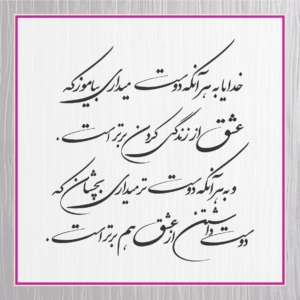 خدایا به هر آنکه دوست میداری بیاموز که
عشق از زندگی کردن برتر است .
و به هر آنکه دوست تر میداری بچشان که
دوست داشتن از عشق هم برتر است .